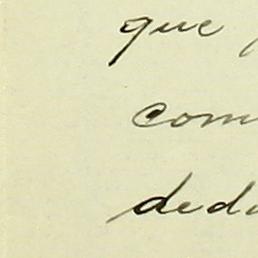 que
com
dedi